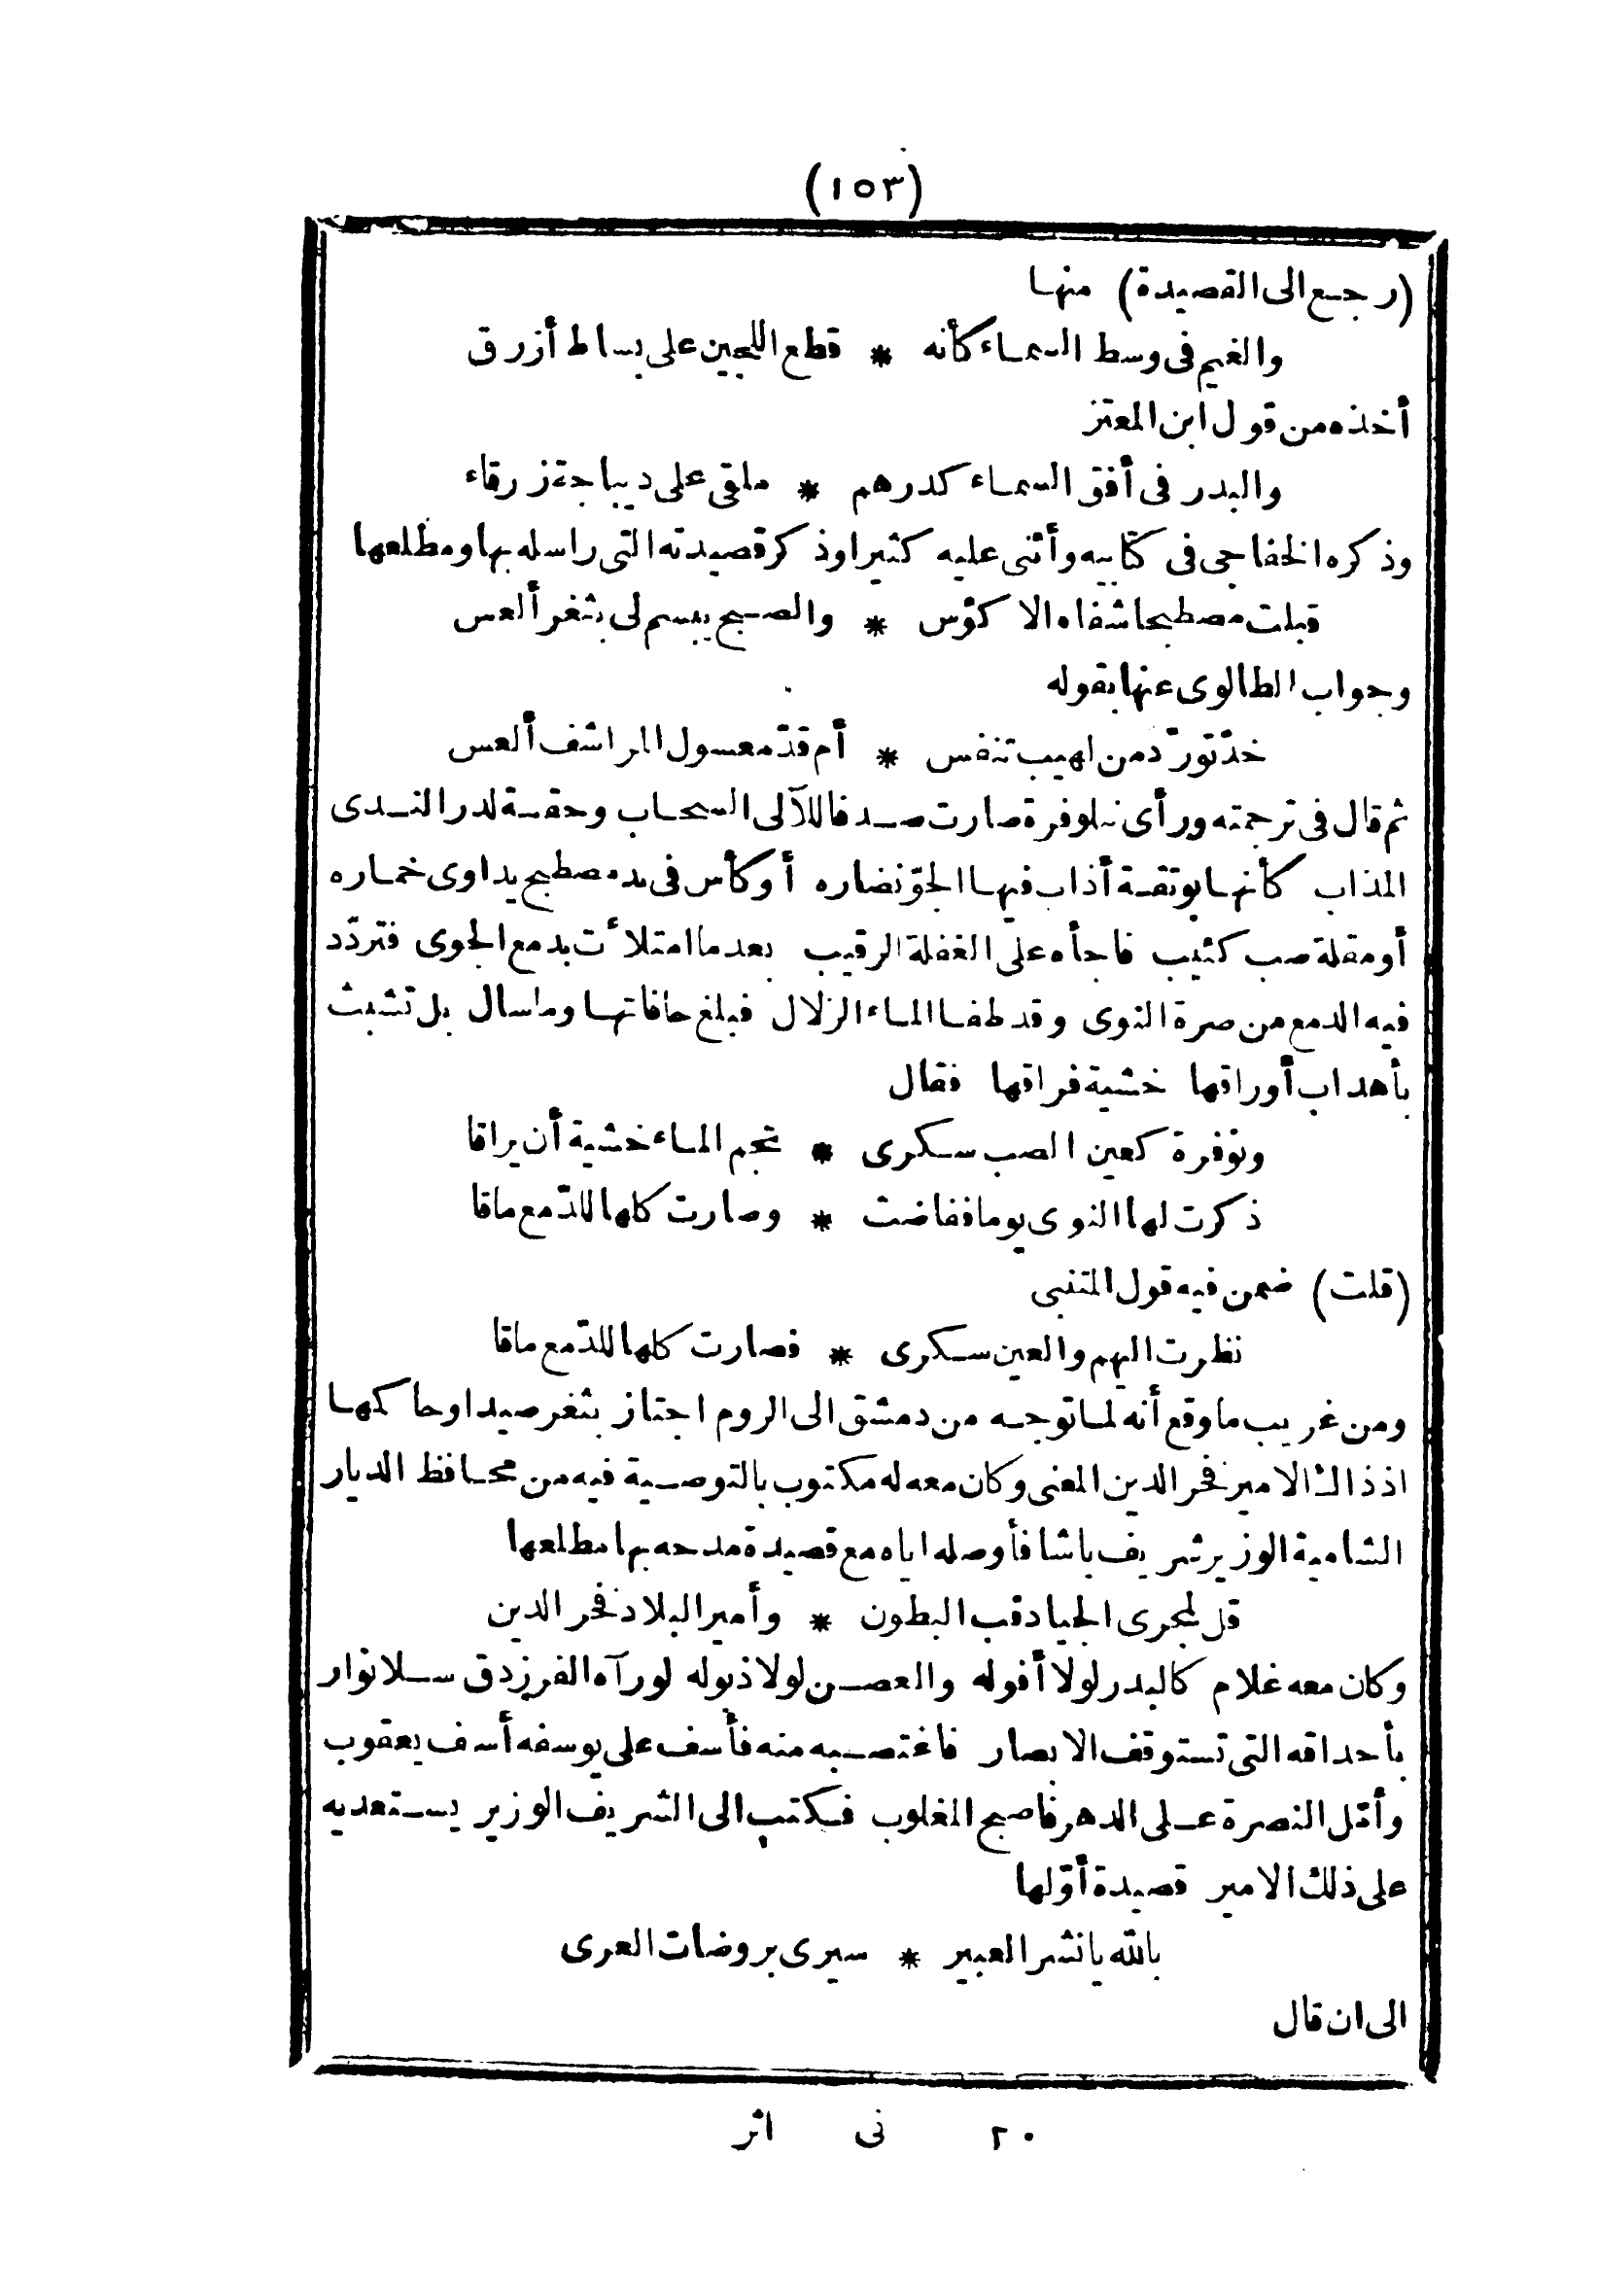 (١٥٣)
(رجع الى القصيدة) منها
والغيم فى وسط السماء كأنه * قطع اللجين على بساط أزرق
أخذه من قول ابن المعتز
والبدر فى أفق السماء كدرهم * ملقى على ديباجة زرقاء
وذكره الخفاجى فى كتابيه وأثنى عليه كثيرا وذكر قصيدته التى راسله بها ومطلعها
قبلت مصطبحا شفاه الاكؤس * والصبح يبسم لى بثغر ألعس
وجواب الطالوى عنها بقوله
خدّ تورّد من لهيب تنفس * أم قدّ معسول المراشف ألعس
ثم قال فى ترجمته ورأى نيلوفرة صارت صدفا للآلى السحاب وحقة لدر الندى
المذاب كأنها بوتقة أذاب فيها الجوّ نضاره أو كأس فى يد مصطبح يداوى خماره
أو مقلة صب كئيب فاجأه على الغفلة الرقيب بعد ما امتلأت بدمع الجوى فتردّد
فيه الدمع من صرة النوى وقد طفا الماء الزلال فبلغ حافاتها وما سال بل تشبث
بأهداب أوراقها خشية فراقها فقال
ونوفرة كعين الصب سكرى * تجم الماء خشية أن يراقا
ذكرت لها النوى يوما ففاضت * وصارت كلها للدّمع ماقا
(قلت) ضمن فيه قول المتنبى
نظرت اليهم والعين سكرى * فصارت كلها للدّمع ماقا
ومن غريب ما وقع أنه لما توجه من دمشق الى الروم اجتاز بثغر صيدا وحاكمها
اذ ذاك الامير فخر الدين المعنى وكان معه له مكتوب بالتوصية فيه من محافظ الديار
الشامية الوزير شريف باشا فأوصله اياه مع قصيدة مدحه بها مطلعها
قل لمجرى الجياد قب البطون * وأمير البلاد فخر الدين
وكان معه غلام كالبدر لولا أفوله والغصن لولا ذبوله لو رآه الفرزدق سلا نوار
بأحداقه التى تستوقف الابصار فاغتصبه منه فأسف على يوسفه أسف يعقوب
وأمّل النصرة على الدهر فاصبح المغلوب فكتب الى الشريف الوزير يستعديه
على ذلك الامير قصيدة أوّلها
بالله يا نشر العبير * سيرى بروضات العرى
الى ان قال
٢٠ نى اثر